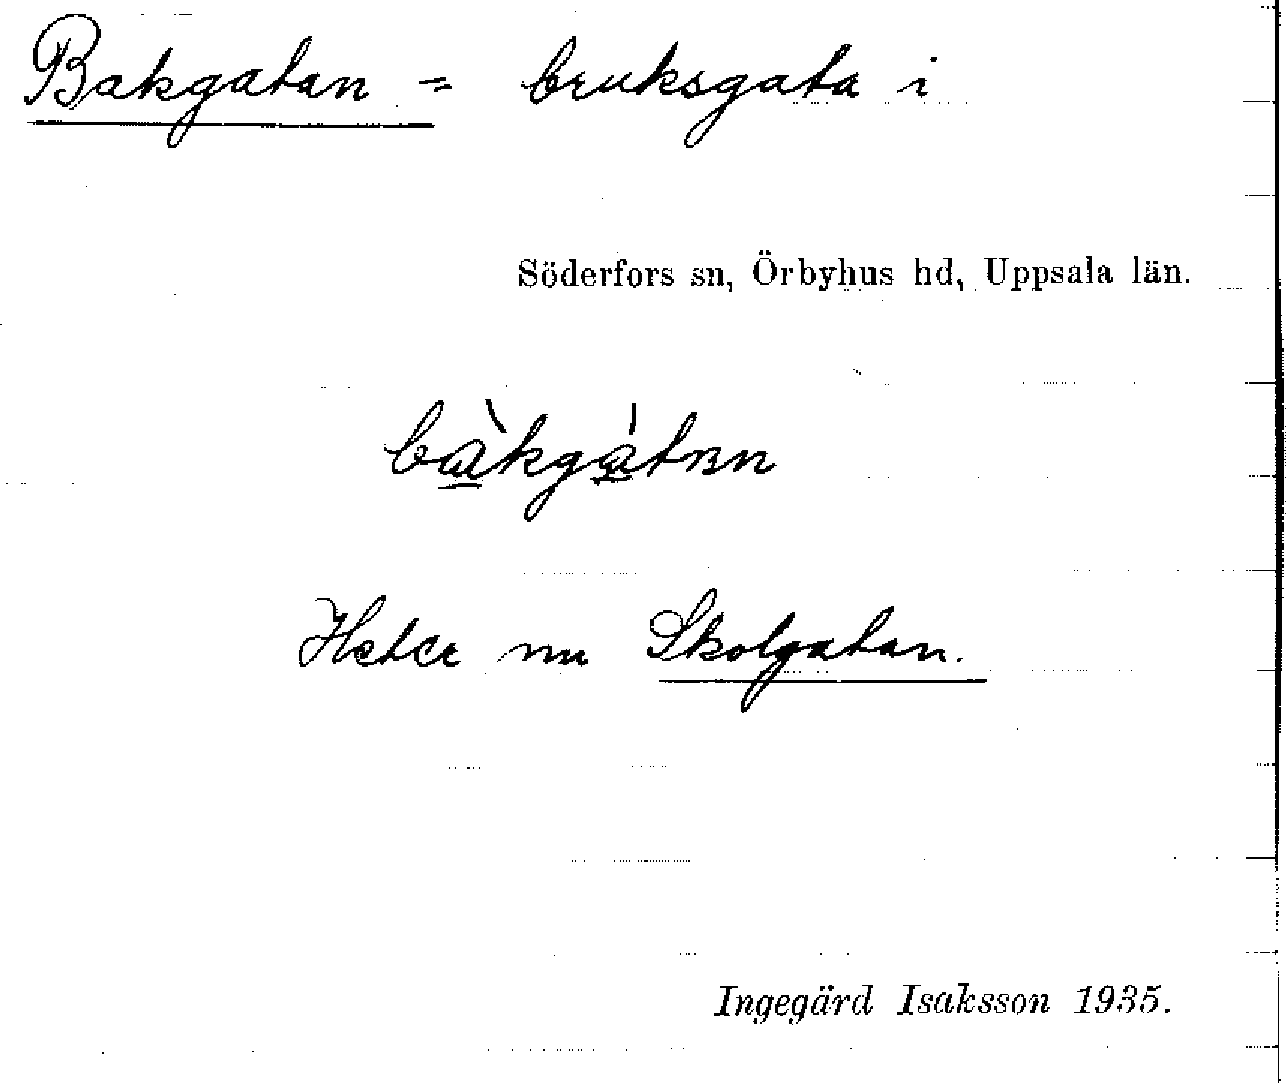 Bakgatan = bruksgata i
Söderfors sn, Örbyhus hd, Uppsala län.
Heter nu Skolgatan.
Ingegärd Isaksson 1935.